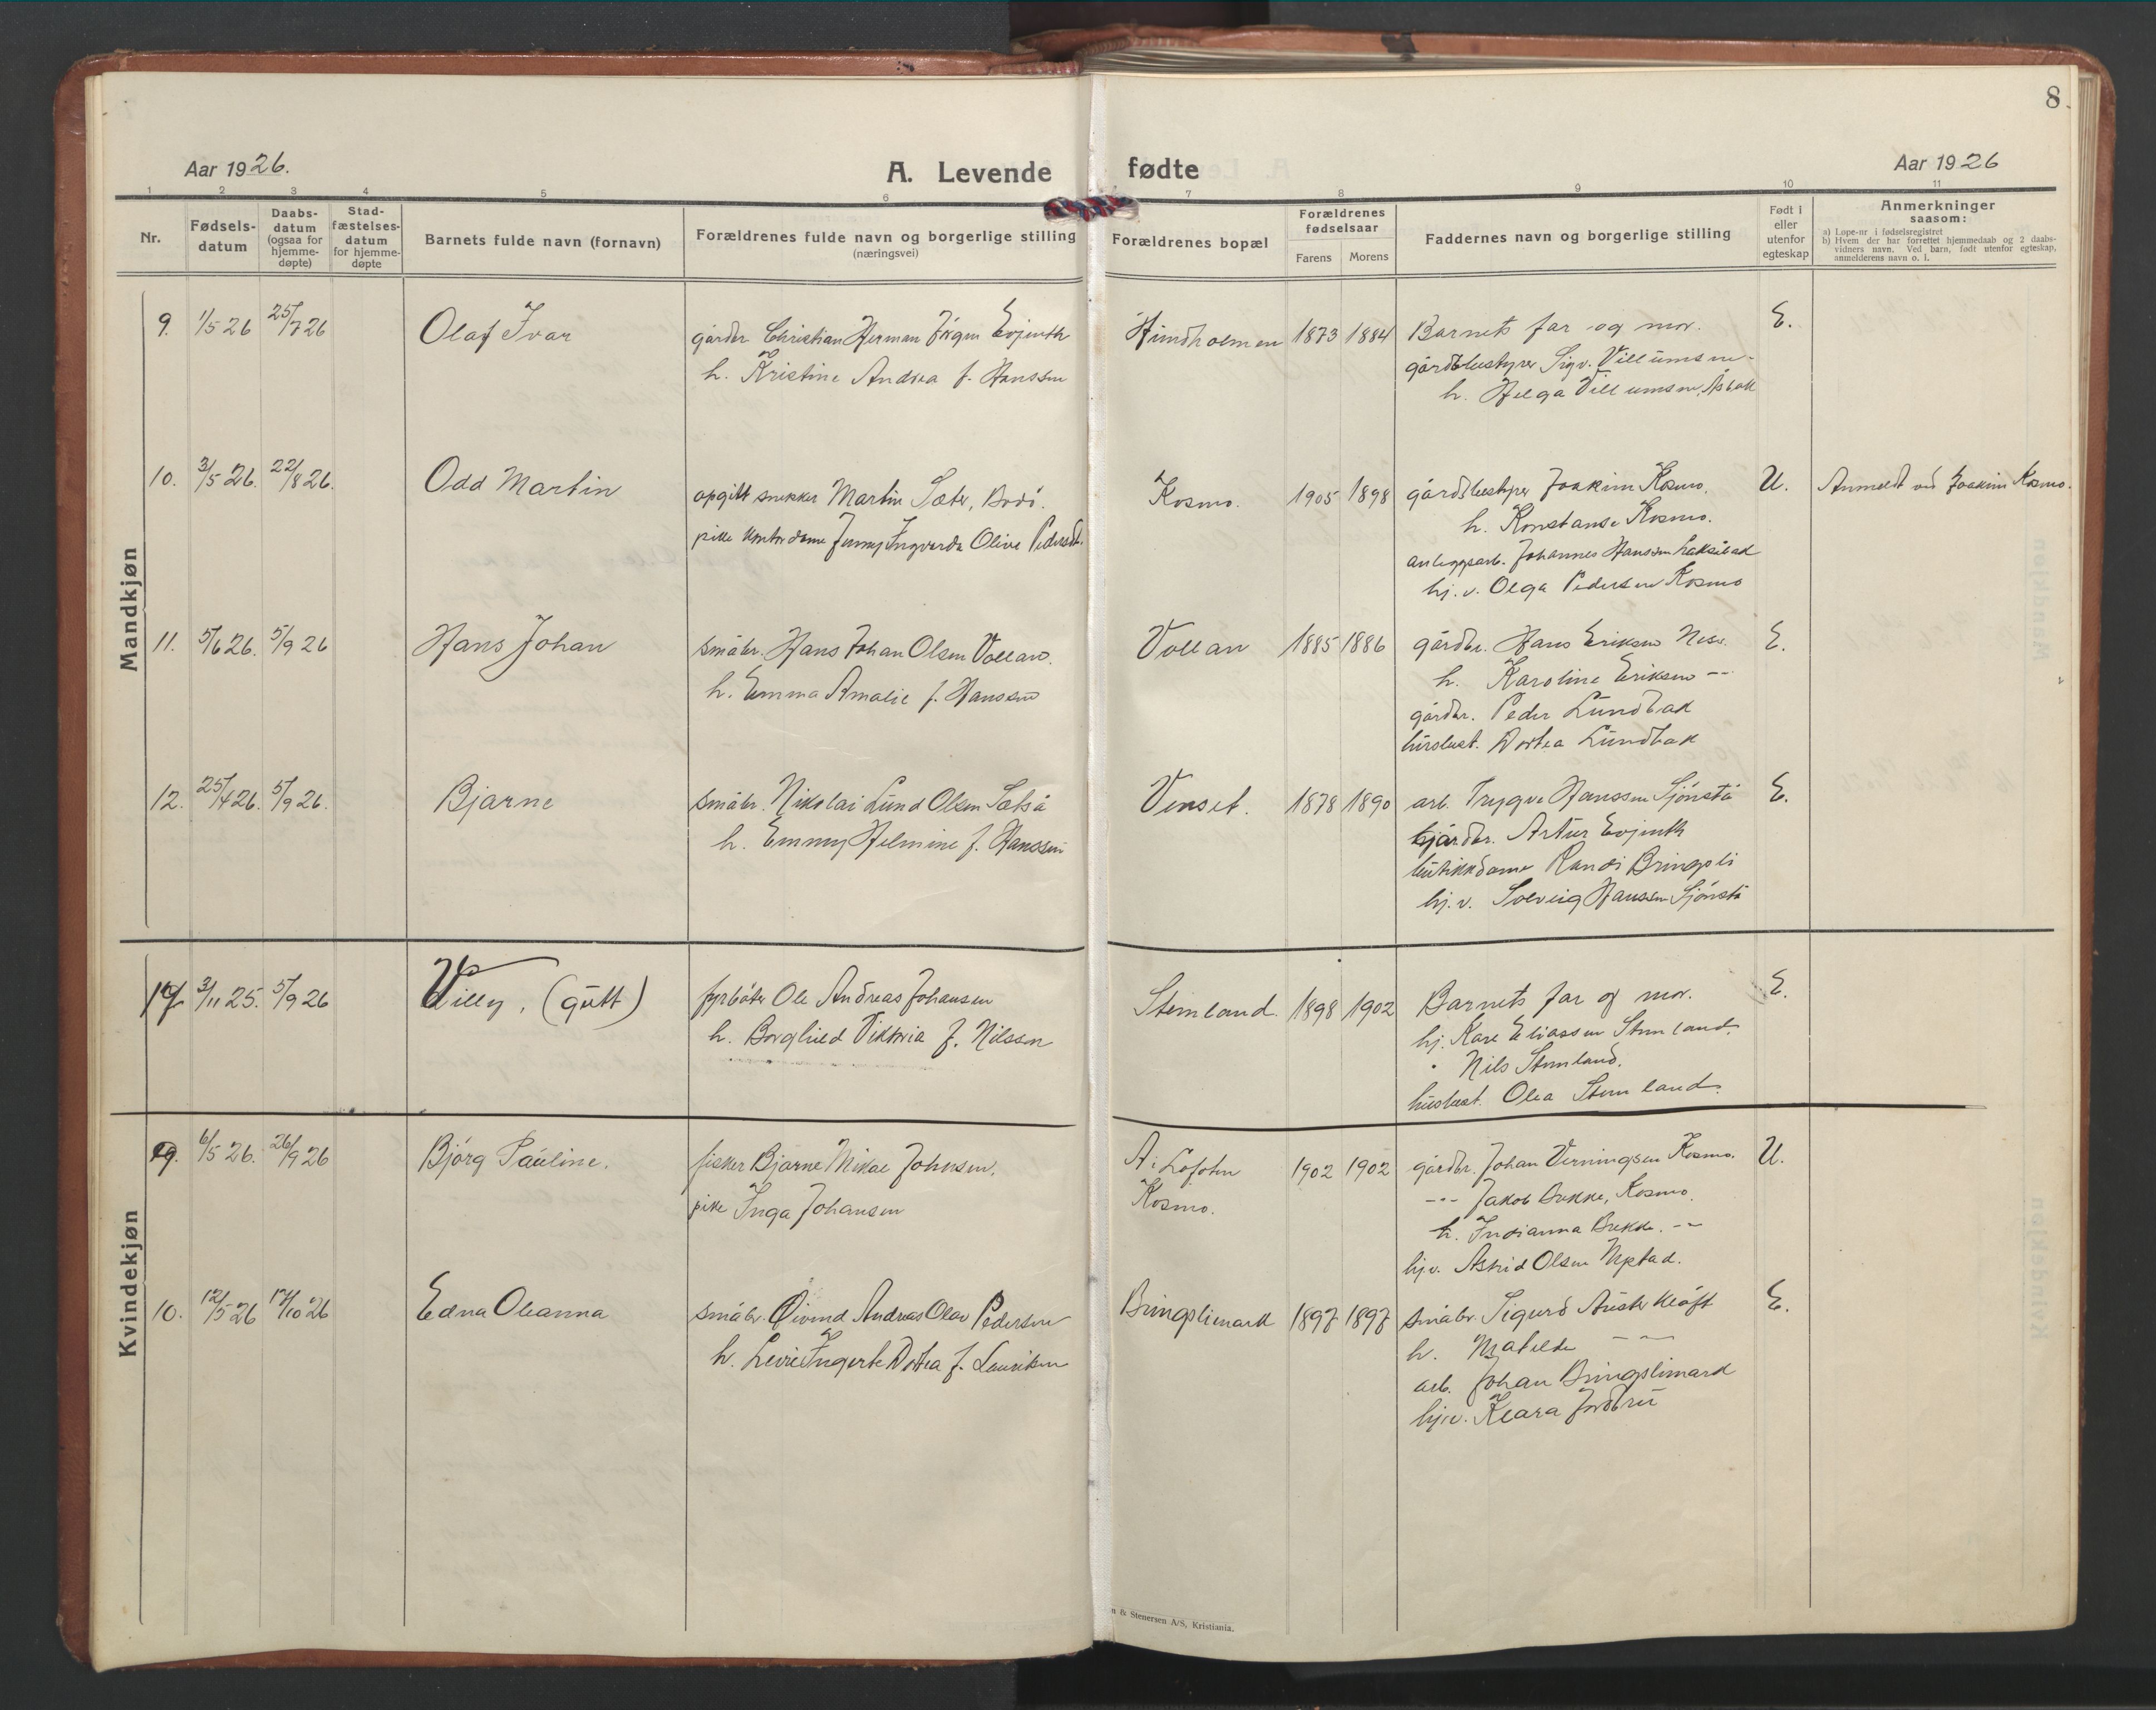 8
Aar 1926.
A. Levende fødte
Aar 1926
1 2 3 4 5 6 7 8 9 10 11
Nr.
Fødselsdatum
Daabsdatum (ogsaa for hjemmedøpte)
Stadfæstelsesdatum for hjemmedøpte
Barnets fulde navn (fornavn)
Forældrenes fulde navn og borgerlige stilling (næringsvei)
Forældrenes bopæl
Forældrenes fødselsaar
Farens Morens
Faddernes navn og borgerlige stilling
Født i eller utenfor egteskap
Anmerkninger saasom:
a) Løpe-nr i fødselsregistret
b) Hvem der har forrettet hjemmedaab og 2 daabsvidners navn. Ved barn, født utenfor egteskap, anmelderens navn o. l.
Mandkjøn
9. 1/5 26 25/7 26 Olaf Ivar
gårdbr. Christian Herman Jörgen Evjenth
h. Kristine Andrea f. Hanssen
Hundholmen 1873 1884
Barnets far og mor.
gårdbestyrer Sigv. Villumsen
h. Helga Villumsen,
E.
10. 3/5 26. 22/8 26. Odd Martin
opgitt snekker Martin Sæter, Bodö.
pike kontordame Jenny Ingvarda Olive Pedersdt.
Kosmo. 1905 1898
gårdsbestyrer Joakim Kosmo.
h. Konstanse Kosmo.
anleggsarb. Johannes Hanssen Laksåbak
hj. v. Olga Pedersen Kosmo
U. Anmeldt ved Joakim Kosmo.
11. 5/6 26. 5/9 26 Hans Johan
småbr. Hans Johan Olsen Vollan.
h. Emma Amalie f. Hanssen
Vollan 1885 1886
gårdbr. Hans Eriksen Ness.
h. Karoline Eriksen --
gårdbr. Peder Lundbak
husbest. Dortea Lundbak
E.
12. 25/4 26. 5/9 26. Bjarne
småbr. Nikolai Lund Olsen Setså
h. Emmy Helmine f. Hanssen
Venset. 1878 1890
arb. Trygve Hanssen Sjönstå
gårdbr. Artur Evjenth
butikkdame Randi Bringsli
hj. v. Solveig Hanssen Sjönstå
E.
3/11 25. 5/9 26 Villy, (gutt)
fyrböter Ole Andreas Johansen
h. Borghild Viktoria f. Nilssen
Stemland. 1898 1902
Barnets far og mor.
hj. Kåre Eliassen Stemland.
" Nils Stemland.
husbest. Olea Stemland.
E.
Kvindekjøn
9. 6/5 26. 26/9 26 Björg Pauline.
fisker Bjarne Mikal Johnsen.
pike Inga Johansen
A i Lofoten
Kosmo.
1902 1902
gårdbr. Johan Verningsen Kosmo.
--- Jakob Bekke, Kosmo.
h. Indianna Bekke. --
hj.v. Astrid Olsen
U.
10. 12/5 26 17/10 26 Edna Oleanna
småbr. Öivind Andreas Olav Pedersen
h. Levie Ingerte Dortea f. Lauritsen
Bringslimark 1897 1897
småbr. Sigurd Austerkløft
h. Matilde --
arb. Johan Bringslimark
hj.v. Klara Jordbru
E.
n & Stenersen A/S, Kristiania.